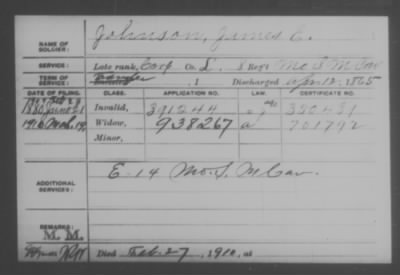 NAME OF SOLDIER: Johnson, James C.
SERVICE: Late rank, Corp Co. L, 8 Reg't Mo S M Cav
TERM OF SERVICE: , 1 Discharged Apr 12, 1865
DATE OF FILING. CLASS. APPLICATION NO. LAW. CERTIFICATE NO.
1880 June 21 Invalid, 391244
1910 Mch. 19 Widow, 938267 a 701792
Minor,
ADDITIONAL SERVICES: E-14 Mo. S. M Cav.
REMARKS:
M. M.
Died Feb. 27, 1910, at